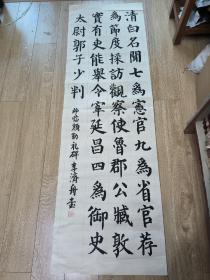 清白名聞七為憲官九為省官荐
為節度採訪觀察使魯郡公臧敦
實有史能舉令宰延昌四為御史
太尉郭子少判
顏勤礼碑 李濟舟書